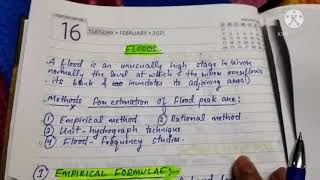 16
TUESDAY • FEBRUARY • 2021
FLOODS
A flood is an unusually high stage in river
normally the level at which the river overflows
its bank & inundates the adjoining area
Methods for estimation of flood peak are:
① Empirical method ② Rational method
③ Unit-hydrograph technique
④ Flood-frequency studies.
1) EMPIRICAL FORMULAE: